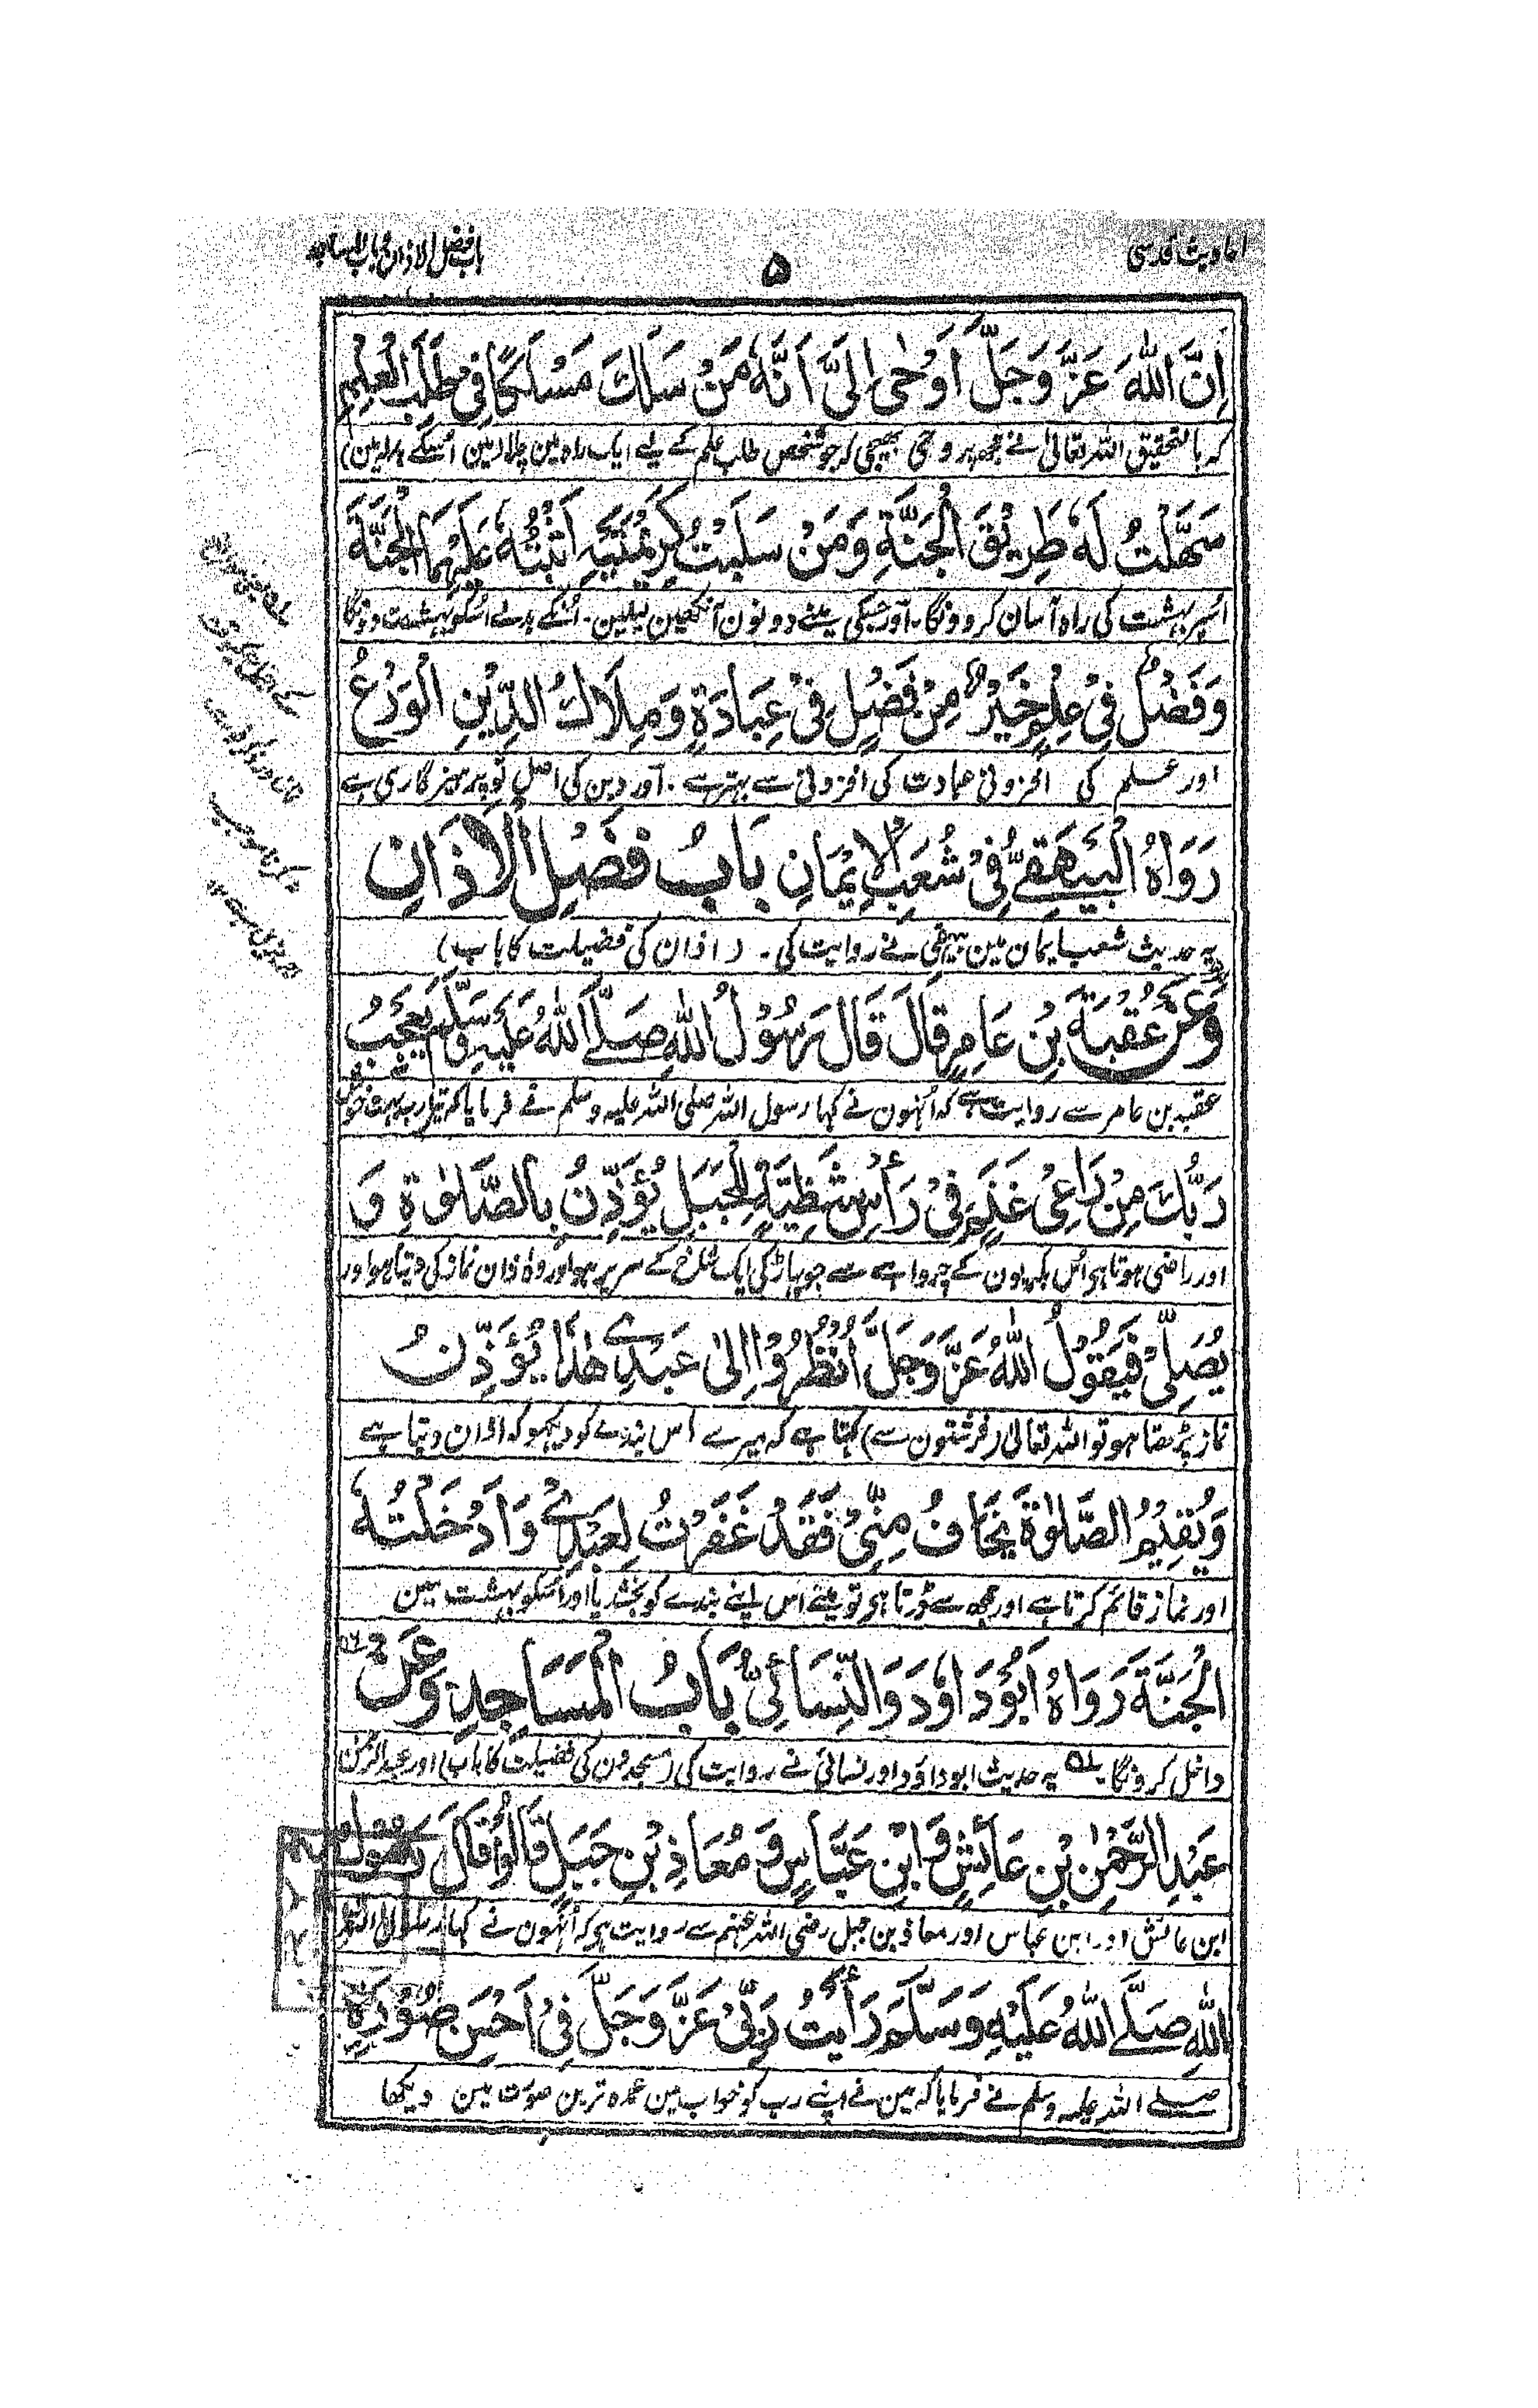 احادیث قدسی
۵
باب فضل الاذان و باب المساجد
اِنَّ اللّٰهَ عَزَّ وَجَلَّ اَوْحٰی اِلَیَّ اَنَّهٗ مَنْ سَلَكَ مَسْلَكًا فِیْ طَلَبِ الْعِلْمِ
کہ بالتحقیق اللہ تعالیٰ نے مجھپر وحی بھیجی کہ جو شخص طلب علم کے لیے ایک راہ مین چلا (مین اُسکے بدلے مین)
سَهَّلْتُ لَهٗ طَرِیْقَ الْجَنَّةِ وَمَنْ سَلَبْتُ كَرِیْمَتَیْهِ اَثَبْتُهٗ عَلَیْهِمَا الْجَنَّةَ
اُسپر بہشت کی راہ آسان کرودونگا۔ آور جسکی مینے دونون آنکھین لیلین۔ اُنکے بدلے اُسکو بہشت دونگا
وَفَضْلٌ فِیْ عِلْمٍ خَیْرٌ مِنْ فَضْلٍ فِیْ عِبَادَةٍ وَمِلَاكُ الدِّیْنِ الْوَرْعُ
اور علم کی افزونی عبادت کی افزونی سے بہتر ہے۔ آور دین کی اصل تو پرہیزگاری ہے
رَوَاهُ الْبَیْهَقِیُّ فِیْ شُعَبِ الْاِیْمَانِ بَابُ فَضْلِ الْاَذَانِ
یہ حدیث شعب ایمان مین بیہقی نے روایت کی۔ (اذان کی فضیلت کا باب)
وَعَنْ عُقْبَةَ بْنِ عَامِرٍ قَالَ قَالَ رَسُوْلُ اللّٰهِ صَلَّے اللّٰهُ عَلَیْهِ وَسَلَّمَ یَعْجَبُ
عقبہ بن عامر سے روایت ہے کہ اُنہون نے کہا رسول اللہ صلی اللہ علیہ وسلم نے فرمایا کہ تیرا رب بہت خوش
رَبُّكَ مِنْ رَاعِیْ غَنَمٍ فِیْ رَأْسِ شَظِیَّةٍ لِلْجَبَلِ یُؤَذِّنُ بِالصَّلٰوةِ وَ
اور راضی ہوتا ہے اُس بکریون کے چرواہے سے جو پہاڑ کی ایک شاخ کے سر پر ہو اور وہ اذان نماز کی دیتا ہو اور
یُصَلِّیْ فَیَقُوْلُ اللّٰهُ عَزَّ وَجَلَّ اُنْظُرُوْا اِلٰی عَبْدِیْ هٰذَا یُؤَذِّنُ
نماز پڑھتا ہو تو اللہ تعالیٰ (فرشتون سے) کہتا ہے کہ میرے اس بندے کو دیکھو کہ اذان دیتا ہے
وَیُقِیْمُ الصَّلٰوةَ یَخَافُ مِنِّیْ فَقَدْ غَفَرْتُ لِعَبْدِیْ وَاَدْخَلْتُهٗ
اور نماز قائم کرتا ہے اور مجھ سے ڈرتا ہے تو مینے اس اپنے بندے کو بخشدیا اور اُسکو بہشت مین
الْجَنَّةَ رَوَاهُ اَبُوْدَاوٗدَ وَالنَّسَائِیُّ بَابُ الْمَسَاجِدِ وَعَنْ
داخل کرونگا۔ یہ حدیث ابوداؤد اور نسائی نے روایت کی (مسجدون کی فضیلت کا باب) اور عبدالرحمٰن
عَبْدِ الرَّحْمٰنِ بْنِ عَائِشٍ وَابْنِ عَبَّاسٍ وَمُعَاذِ بْنِ جَبَلٍ قَالُوْا قَالَ رَسُوْلُ
ابن عائش اور ابن عباس اور معاذ بن جبل رضی اللہ عنہم سے روایت ہے کہ اُنہون نے کہا رسول اللہ
اللّٰهِ صَلَّے اللّٰهُ عَلَیْهِ وَسَلَّمَ رَأَیْتُ رَبِّیْ عَزَّ وَجَلَّ فِیْ اَحْسَنِ صُوْرَةٍ
صلے اللہ علیہ وسلم نے فرمایا کہ مین نے اپنے رب کو خواب مین عمدہ ترین صورت مین دیکھا